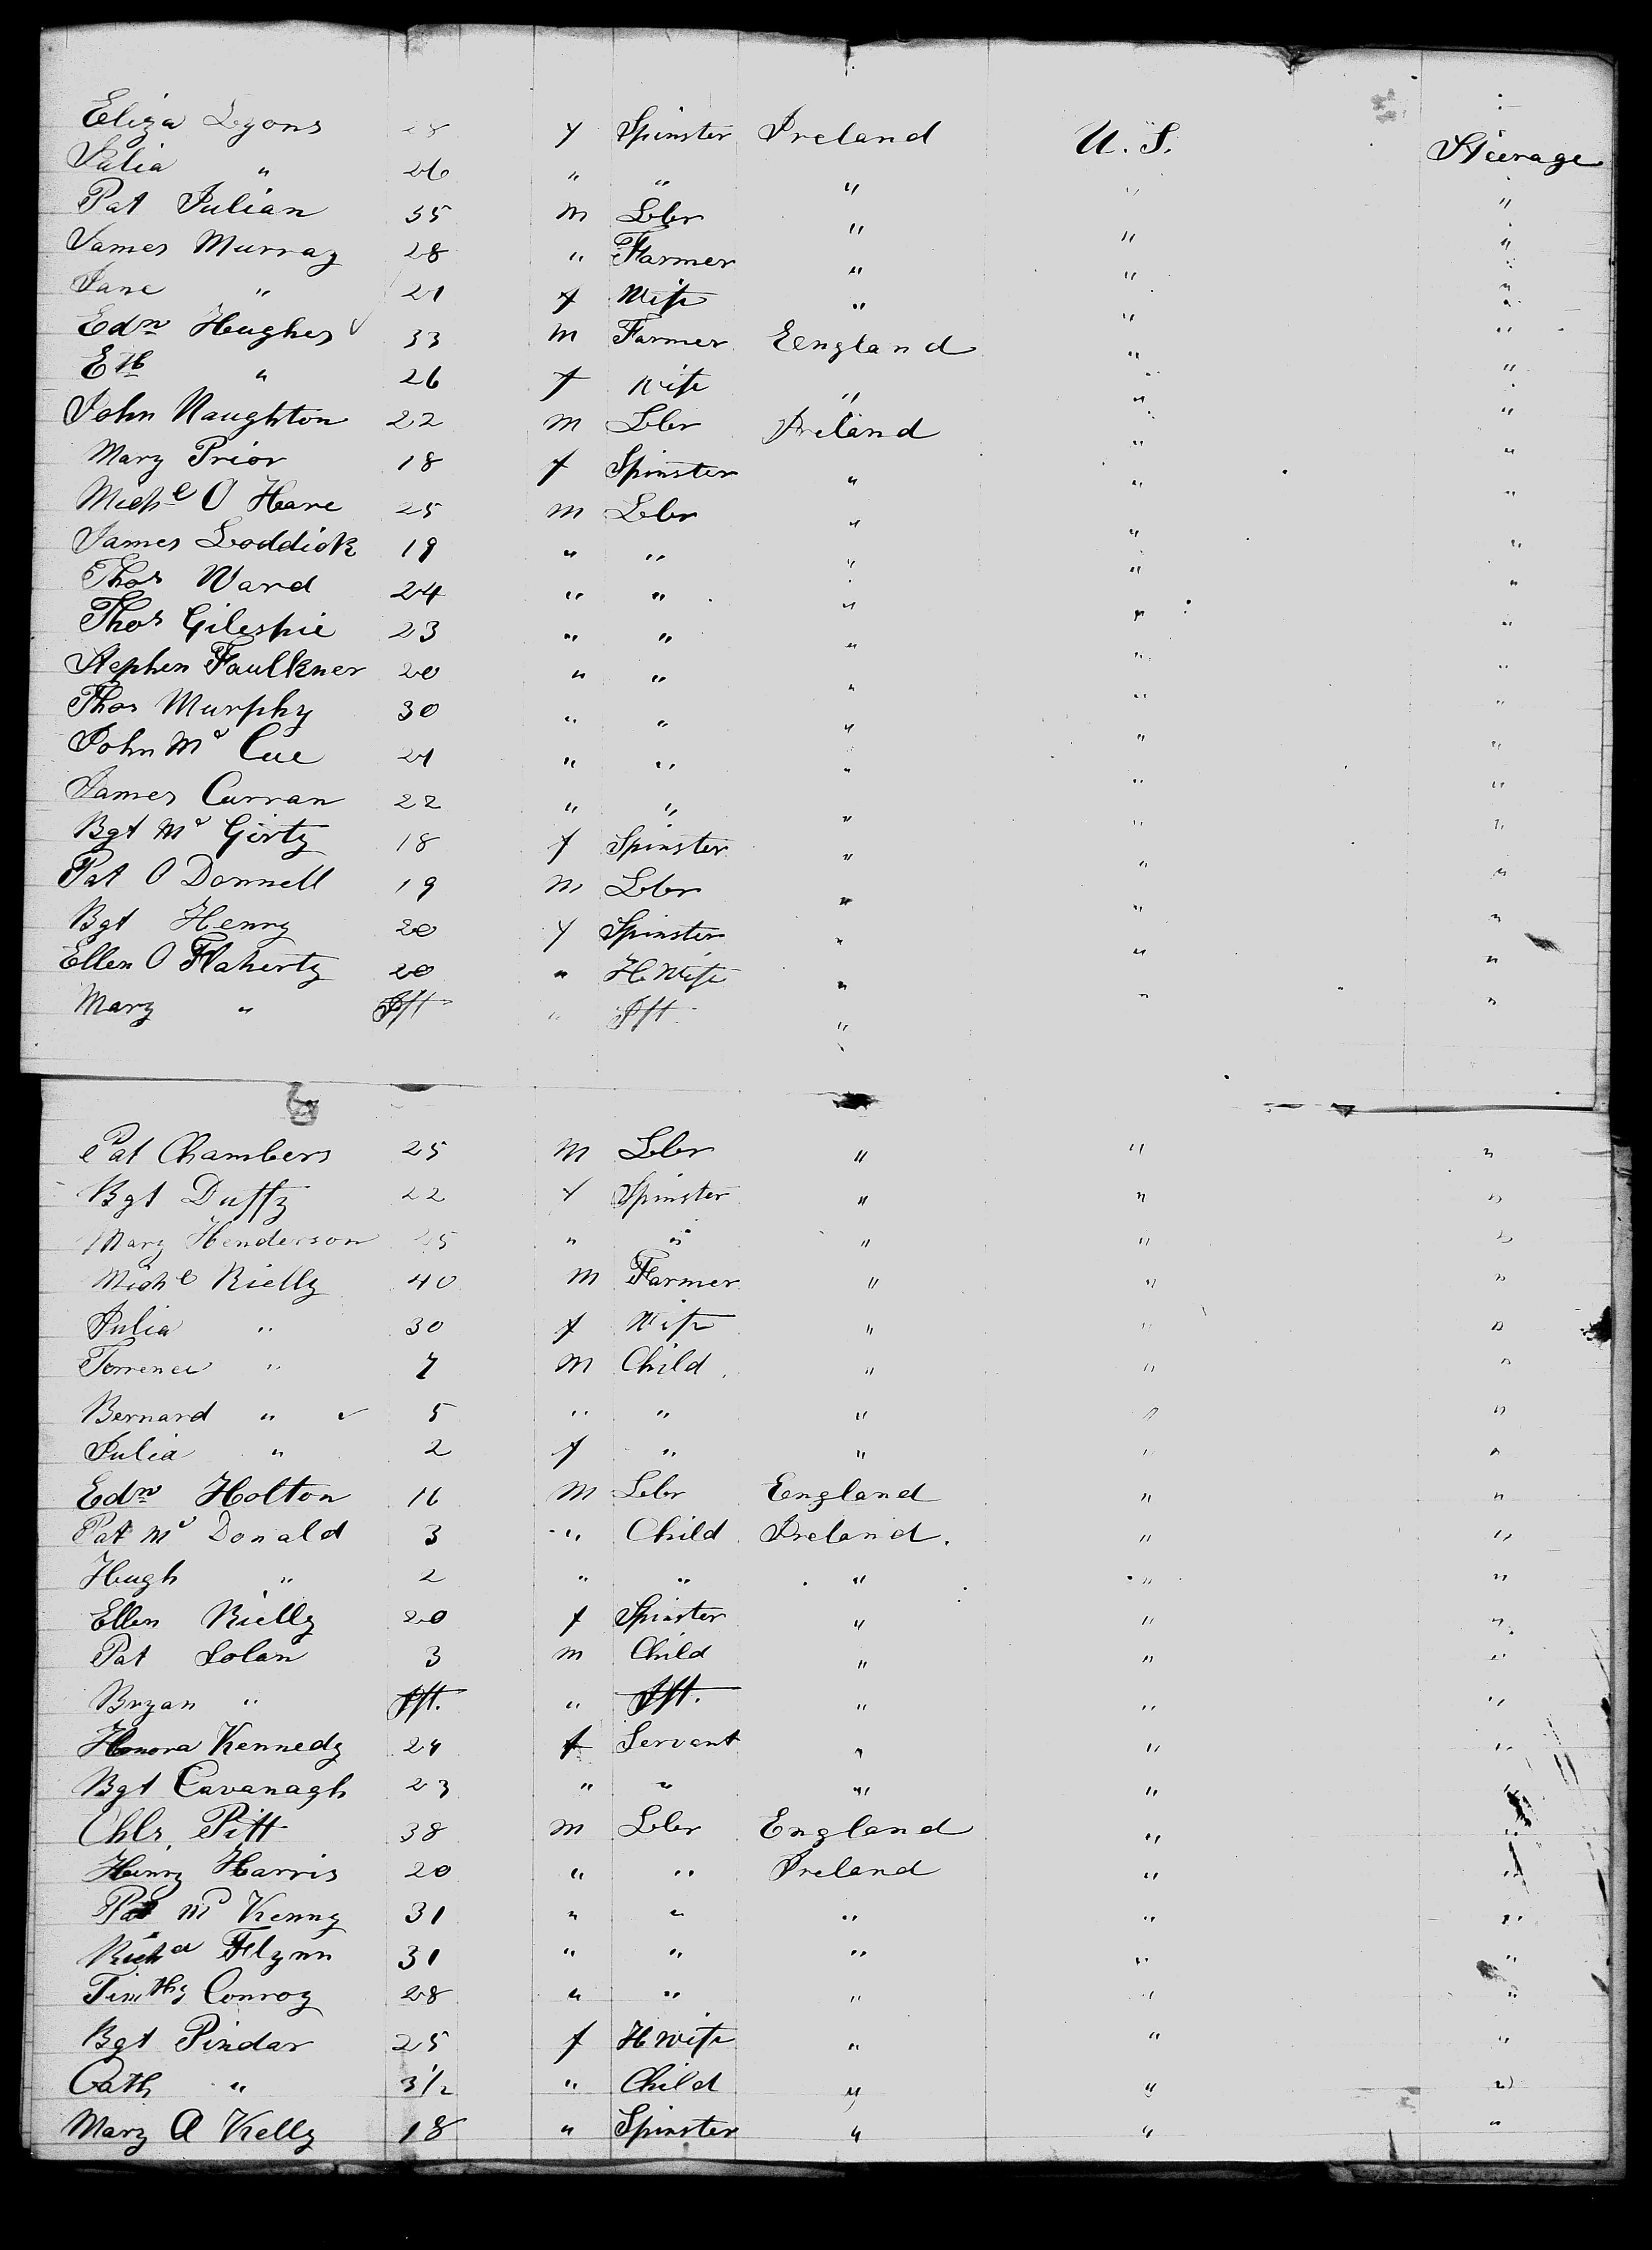 Eliza Lyons 28 f Spinster Ireland U. S. Steerage
Julia " 26 " " " " "
Pat Julian 35 m Lbr " " "
James Murray 28 " Farmer " " "
Jane " 21 f Wife " " "
Edwd Hughes 33 m Farmer England " "
Eth " 26 f Wife " " "
John Naughton 22 m Lbr Ireland " "
Mary Prior 18 f Spinster " " "
Michl O Hare 25 m Lbr " " "
James Loddick 19 " " " " "
Thos Ward 24 " " " " "
Thos Gilespie 23 " " " " "
Stephen Faulkner 20 " " " " "
Thos Murphy 30 " " " " "
John Mc Cue 21 " " " " "
James Curran 22 " " " " "
Bgt Mc Girty 18 f Spinster " " "
Pat O Donnell 19 m Lbr " " "
Bgt Henry 20 f Spinster " " "
Ellen O Flaherty 20 " H Wife " " "
Mary " Ift " Ift " " "
Pat Chambers 25 m Lbr " " "
Bgt Duffy 22 f Spinster " " "
Mary Henderson 25 " " " " "
Michl Rielly 40 m Farmer " " "
Julia " 30 f Wife " " "
Terrence " 7 m Child " " "
Bernard " 5 " " " " "
Julia " 2 f " " " "
Edwd Holton 16 m Lbr England " "
Pat Mc Donald 3 " Child Ireland. " "
Hugh " 2 " " " " "
Ellen Rielly 20 f Spinster " " "
Pat Solan 3 m Child " " "
Bryan " Ift. " Ift. " " "
Honora Kennedy 24 f Servant " " "
Bgt Cavanagh 23 " " " " "
Chls. Pitt 38 m Lbr England " "
Henry Harris 20 " " Ireland " "
Pat Mc Kenny 31 " " " " "
Richd Flynn 31 " " " " "
Timthy Conroy 28 " " " " "
Bgt Pindar 25 f H Wife " " "
Cath " 3 1/2 " Child " " "
Mary A Kelly 18 " Spinster " " "